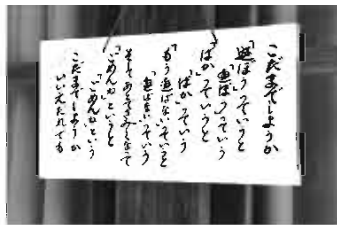 こだまでしょうか
「遊ぼう」っていうと
「遊ぼう」っていう
「ばか」っていうと
「ばか」っていう
「もう遊ばない」っていうと
「遊ばない」っていう
そして、あとでさみしくなって
「ごめんね」っていうと
「ごめんね」っていう
こだまでしょうか
いいえ、だれでも